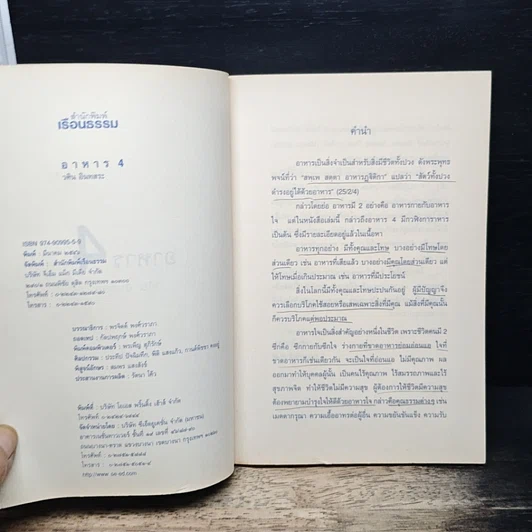 สำนักพิมพ์
เรือนธรรม
อาหาร 4
วศิน อินทสระ
ISBN 974-90995-5-9
พิมพ์ : มีนาคม ๒๕๔๖
จัดพิมพ์ : สำนักพิมพ์เรือนธรรม
โทรศัพท์ :
โทรสาร :
บรรณาธิการ : พรจิตต์ พงศ์วราภา
ออกแบบ : กัลปพฤกษ์ พงศ์วราภา
พิมพ์คอมพิวเตอร์ : พรเพ็ญ
พิสูจน์อักษร : สมพร แสงสังข์
ประสานงานการผลิต : รัตนา โค้ว
พิมพ์ที่ :
โทรศัพท์
จัดจำหน่ายโดย : บริษัท ซีเอ็ดยูเคชั่น (มหาชน)
โทรศัพท์ :
โทรสาร :
คำนำ
อาหารเป็นสิ่งจำเป็นสำหรับสิ่งมีชีวิตทั้งปวง ดังพระพุทธ
พจน์ที่ว่า "สพฺเพ สตฺตา อาหารฏฺฐิติกา" แปลว่า "สัตว์ทั้งปวง
ดำรงอยู่ได้ด้วยอาหาร" (25/2/4)
กล่าวโดยย่อ อาหารมี 2 อย่างคือ อาหารกายกับอาหาร
ใจ แต่ในหนังสือเล่มนี้ กล่าวถึงอาหาร 4 มีกวฬิงการาหาร
เป็นต้น ซึ่งมีรายละเอียดอยู่แล้วในเนื้อหา
อาหารทุกอย่าง มีทั้งคุณและโทษ บางอย่างมีโทษโดย
ส่วนเดียว เช่น อาหารที่เสียแล้ว บางอย่างมีคุณโดยส่วนเดียว แต่
ให้โทษเมื่อเกินประมาณ เช่น อาหารที่มีประโยชน์
สิ่งในโลกนี้มีทั้งคุณและโทษปะปนกันอยู่ ผู้มีปัญญาจึง
ควรเลือกบริโภคใช้สอยหรือเสพเฉพาะสิ่งที่มีคุณ แม้สิ่งที่มีคุณนั้น
ก็ควรบริโภคแต่พอประมาณ
อาหารใจเป็นสิ่งสำคัญอย่างหนึ่งในชีวิต เพราะชีวิตคนมี 2
ซีกคือ ซีกกายกับซีกใจ ร่างกายที่ขาดอาหารย่อมอ่อนแอ ใจที่
ขาดอาหารก็เช่นเดียวกัน จะเป็นใจที่อ่อนแอ ไม่มีคุณภาพ ผล
ออกมาทำให้บุคคลผู้นั้น เป็นคนไร้คุณภาพ ไร้สมรรถภาพและไร้
สุขภาพจิต ทำให้ชีวิตไม่มีความสุข ผู้ต้องการให้ชีวิตมีความสุข
ต้องพยายามบำรุงใจให้ดีด้วยอาหารใจ กล่าวคือคุณธรรมต่างๆ เช่น
เมตตากรุณา ความเอื้ออาทรต่อผู้อื่น ความขยันขันแข็ง ความรับ